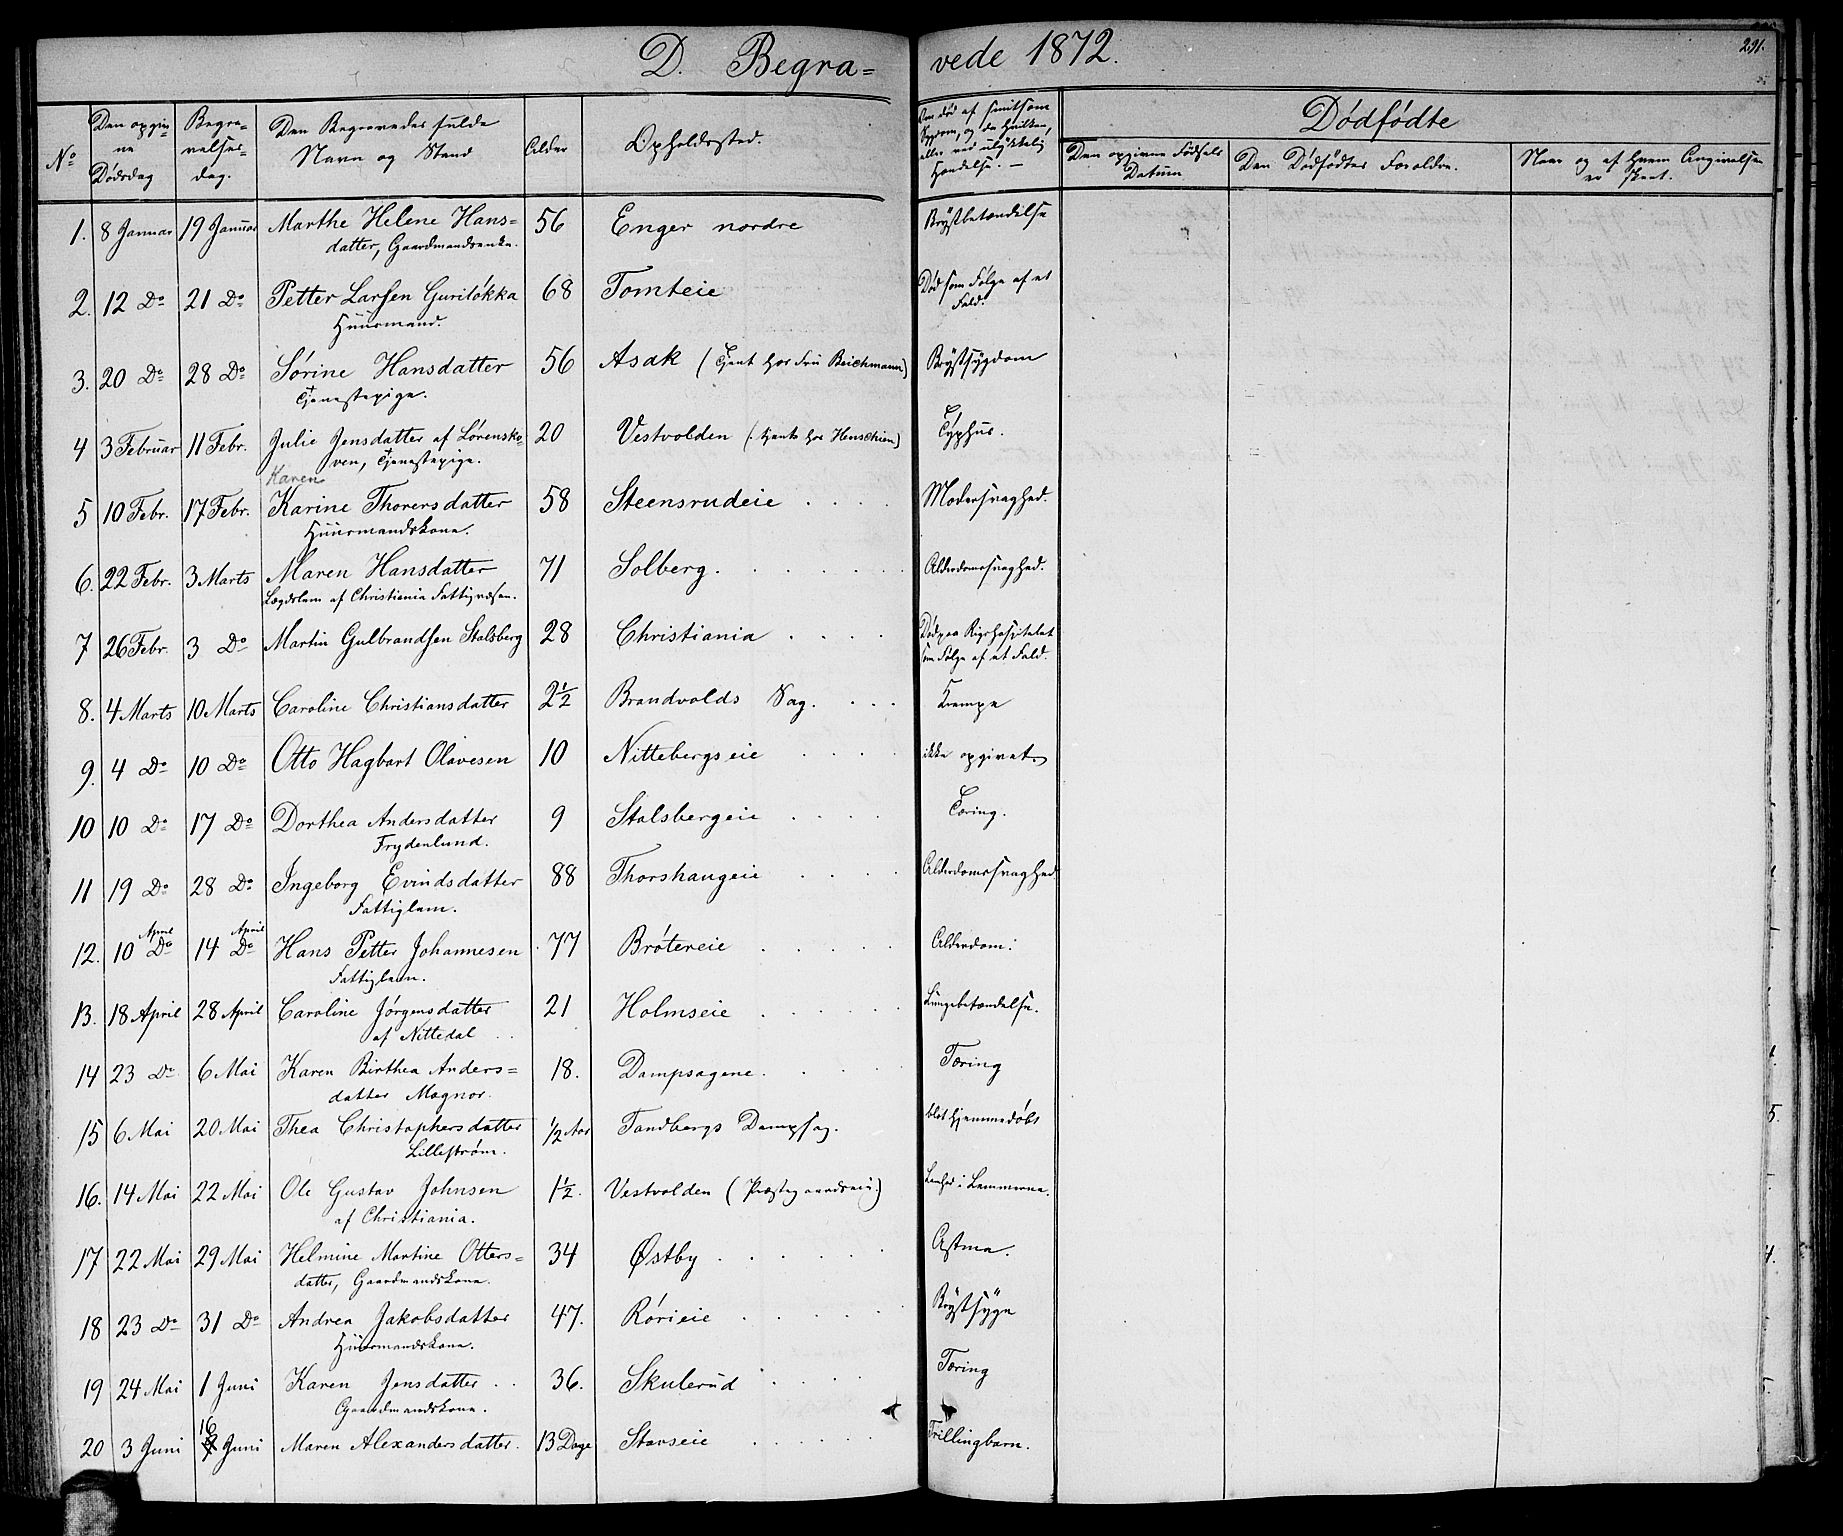 D. Begra= vede 1872.
291.
No
Den opgiv
ne
Dødsdag
Begra-
velses-
dag.
Den Begravedes fulde
Navn og Stand
Alder
Opholdssted.
Om død af smitsom
Sygdom, og da hvilken,
eller ved ulykkelig
Hændelse. —
Dødfødte
Den opgivne Fødsels
Datum
Den Dødfødtes Forældre.
Naar og af hvem Angivelsen
er skeet.
1. 8 Januar 19 Januar Marthe Helene Hans= 56 Enger nordre Brystbetændelse
datter, Gaardmandsenke.
2. 12 Do 21 Do Petter Larsen Guriløkka 68 Tomteie Død som Følge af et
Huusmand. Fald.
3. 20 Do 28 Do Sørine Hansdatter 56 Asak (tjent hos Fru Beichmann) Brystsygdom
Tjenestepige.
4 3 Februar 11 Febr. Julie Jensdatter af Lørensko- 20 Vestvolden (tjente hos Henschien) Typhus.
ven, Tjenestepige.
Karen
5 10 Febr. 17 Febr. Karine Thorersdatter 58 Steensrudeie . . . . Modersvaghed.
Huusmandskone.
6. 22 Febr. 3 Marts Maren Hansdatter 71 Solberg. . . . . Alderdomssvaghed.
Lægdslem af Christiania Fattigvæsen.
7 26 Febr. 3 Do Martin Gulbrandsen Stalsberg 28 Christiania . . . . Død paa Rigshospitalet
som Følge af et Fald.
8. 4 Marts 10 Marts Caroline Christiansdatter 2½ Brandvolds Sag. . . . Krampe
9. 4 Do 10 Do Otto Hagbart Olavesen 10 Nittebergseie . . . ikke opgivet.
10 10 Do 17 Do Dorthea Andersdatter 9 Stalsbergeie . . . . Tæring.
Frydenlund.
11 19 Do 28 Do Ingeborg Evindsdatter 88 Thorshaugeie . . . Alderdomssvaghed
Fattiglem.
April April
12. 10 Do 14 Do Hans Petter Johannesen 77 Brøtereie . . . . Alderdom.
Fattiglem.
13. 18 April 28 April Caroline Jørgensdatter 21 Holmseie . . . . Lungebetændelse.
af Nittedal . .
14 23 Do 6 Mai Karen Birthea Anders= 18. Dampsagene. . . . Tæring
datter Magnor.
15 6 Mai 20 Mai Thea Christophersdatter ½ Aar Tandbergs Dampsag. blot hjemmedøbt
Lillestrøm.
16. 14 Mai 22 Mai Ole Gustav Johnsen 1½. Vestvolden (Præstegaardseie.) i Lemmerne.
af Christiania.
17 22 Mai 29 Mai Helmine Martine Otters= 34 Østby . . . . Astma.
datter, Gaardmandskone.
18 23 Do 31 Do Andrea Jakobsdatter 47. Rørieie . . . . Brystsyge
Huusmandskone.
19 24 Mai 1 Juni Karen Jensdatter . . 36. Skulerud . . . . Tæring
Gaardmandskone.
16
20 3 Juni Juni Maren Alexandersdatter. 13 Dage Stavseie . . . . Trillingbarn.